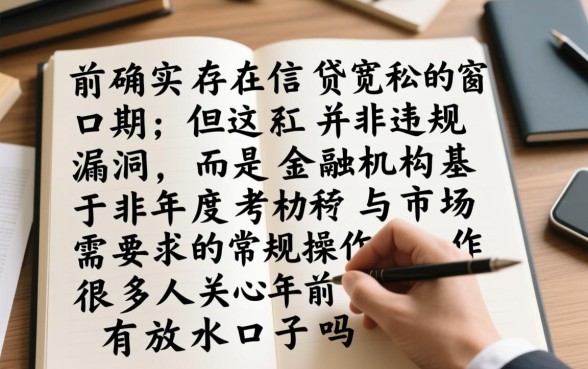 前确实存在信贷宽松的窗
口期；但这 并非违规
漏洞，而是金融机构基
于非年度考 与市场
需要求的常规操作 作
很多人关心年前
有放水口子吗